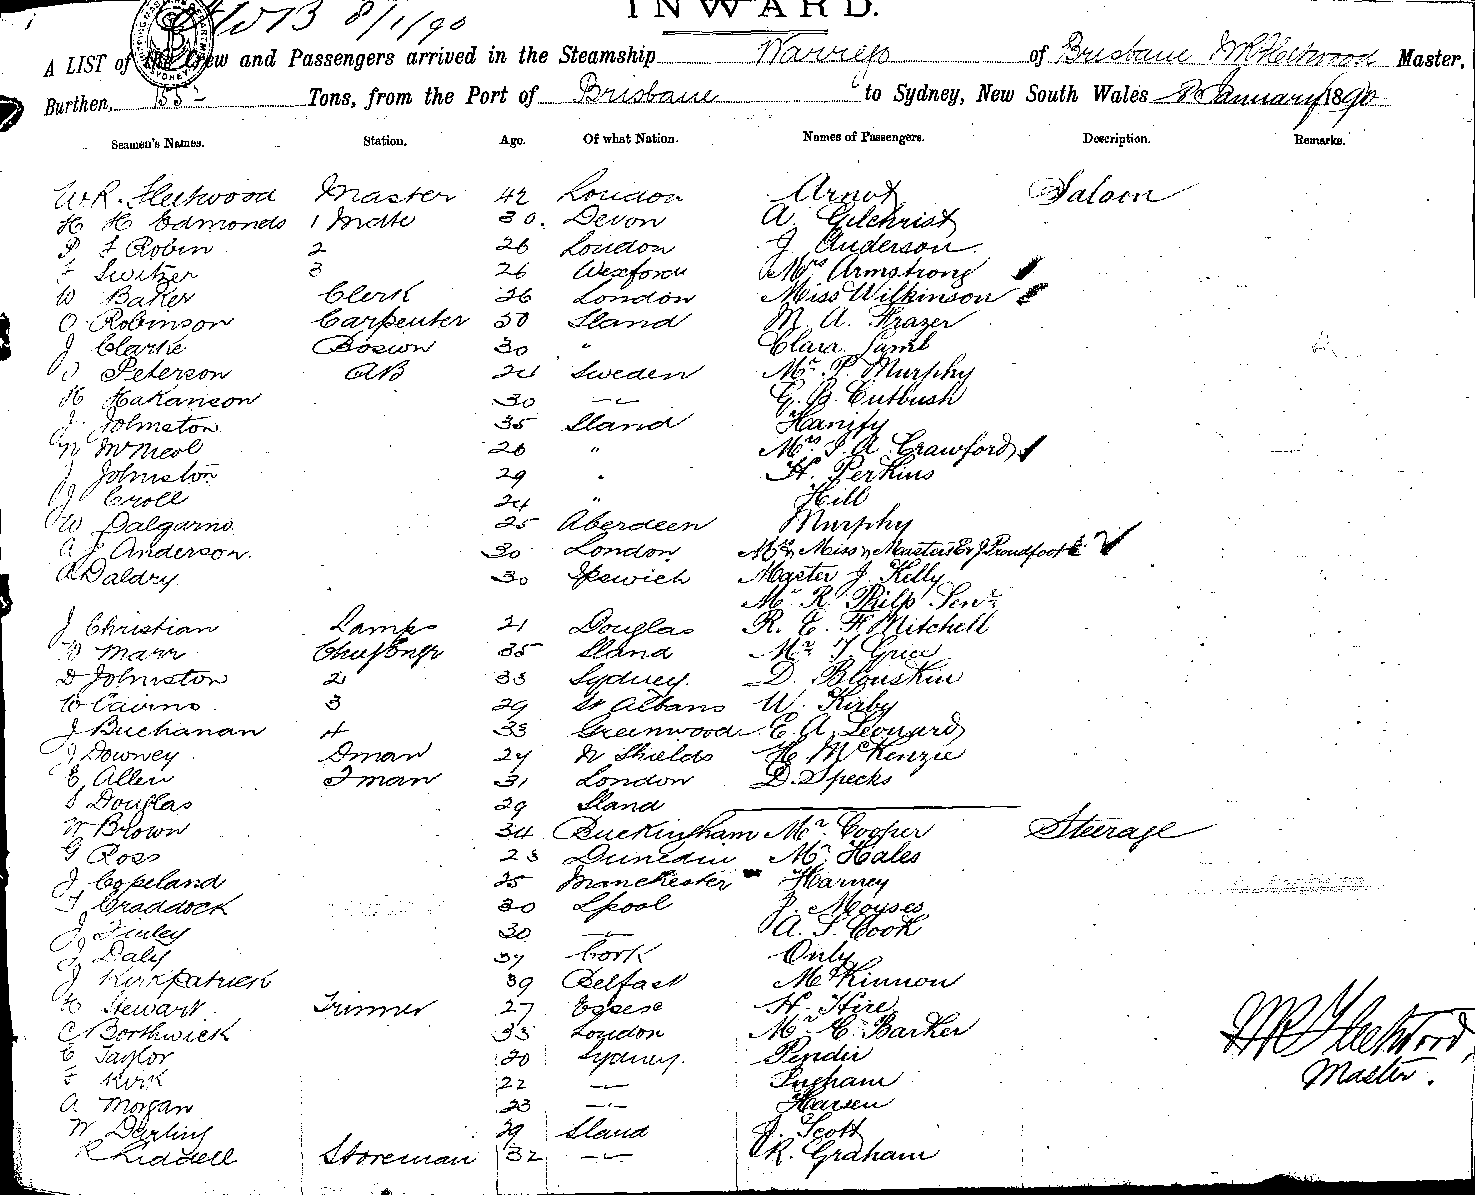 8/1/90
INWARD.
A LIST of the Crew and Passengers arrived in the Steamship Warrego of Brisbane WR Fleetwood Master,
Burthen, 155 Tons, from the Port of Brisbane to Sydney, New South Wales 8 January 1890
Seamen's Names. Station. Age. Of what Nation. Names of Passengers. Description. Remarks.
W R. Fleetwood Master 42 London Arnot Saloon
H H Edmonds 1 Mate 30. Devon A. Gilchrist
P F Robin 2 26 London J Anderson
F Switzer 3 26 Wexford Mrs Armstrong
W Baker Clerk 26 London Miss Wilkinson
O Robinson Carpenter 50 Sland M A. Frazer
J Clarke Bosun 30 " Clara Lamb
Peterson AB 24 Sweden Mr P. Murphy
H Hakanson 30 —"— G. B. Cutbush
J Johnston 35 Sland Hanify
N McNeol 26 " Mrs J. A Crawford
J Johnston 29 " H. Perkins
J Croll 24 " Hill
W Dalgarno 25 Aberdeen Murphy
A J Anderson 30 London Mrs, Miss, Masters E & J Proudfoot
R Daldry 30 Ipswich Master J. Kelly
Mr R. Philp Senr
J Christian Lamps 21 Douglas R. C. H Mitchell
D Marr Chief Engr 35 Sland Mr T. Grice
D Johnston 2 33 Sydney D. Blouskin
W Cairns 3 29 St Albans W. Kirby
J Buchanan 4 33 Greenwood E. A. Leonard
J Downey Dman 24 N Shields H McKenzie
E Allen Fman 31 London D. Specks
S Douglas 29 Sland
W Brown 34 Buckingham Mr. Cooper Steerage
G Ross 23 Dunedin Mr Hales
J Copeland 25 Manchester Harney
F Craddock 30 Lpool J. Moyses
J Finley 30 —"— A. S. Cook
J Daly 37 Cork Only
J Kirkpatrick 39 Belfast McKinnon
H Stewart Trimmer 27 Essex H. Hire
C Borthwick 33 London Mr. C. Barker
C Taylor 20 Sydney. Pender
F Kirk 22 —"— Ingham
A. Morgan 23 —"— Harsen
W Darling 29 Sland J. Scott
R Liddell Storeman 32 —"— R. Graham
WR Fleetwood,
Master.